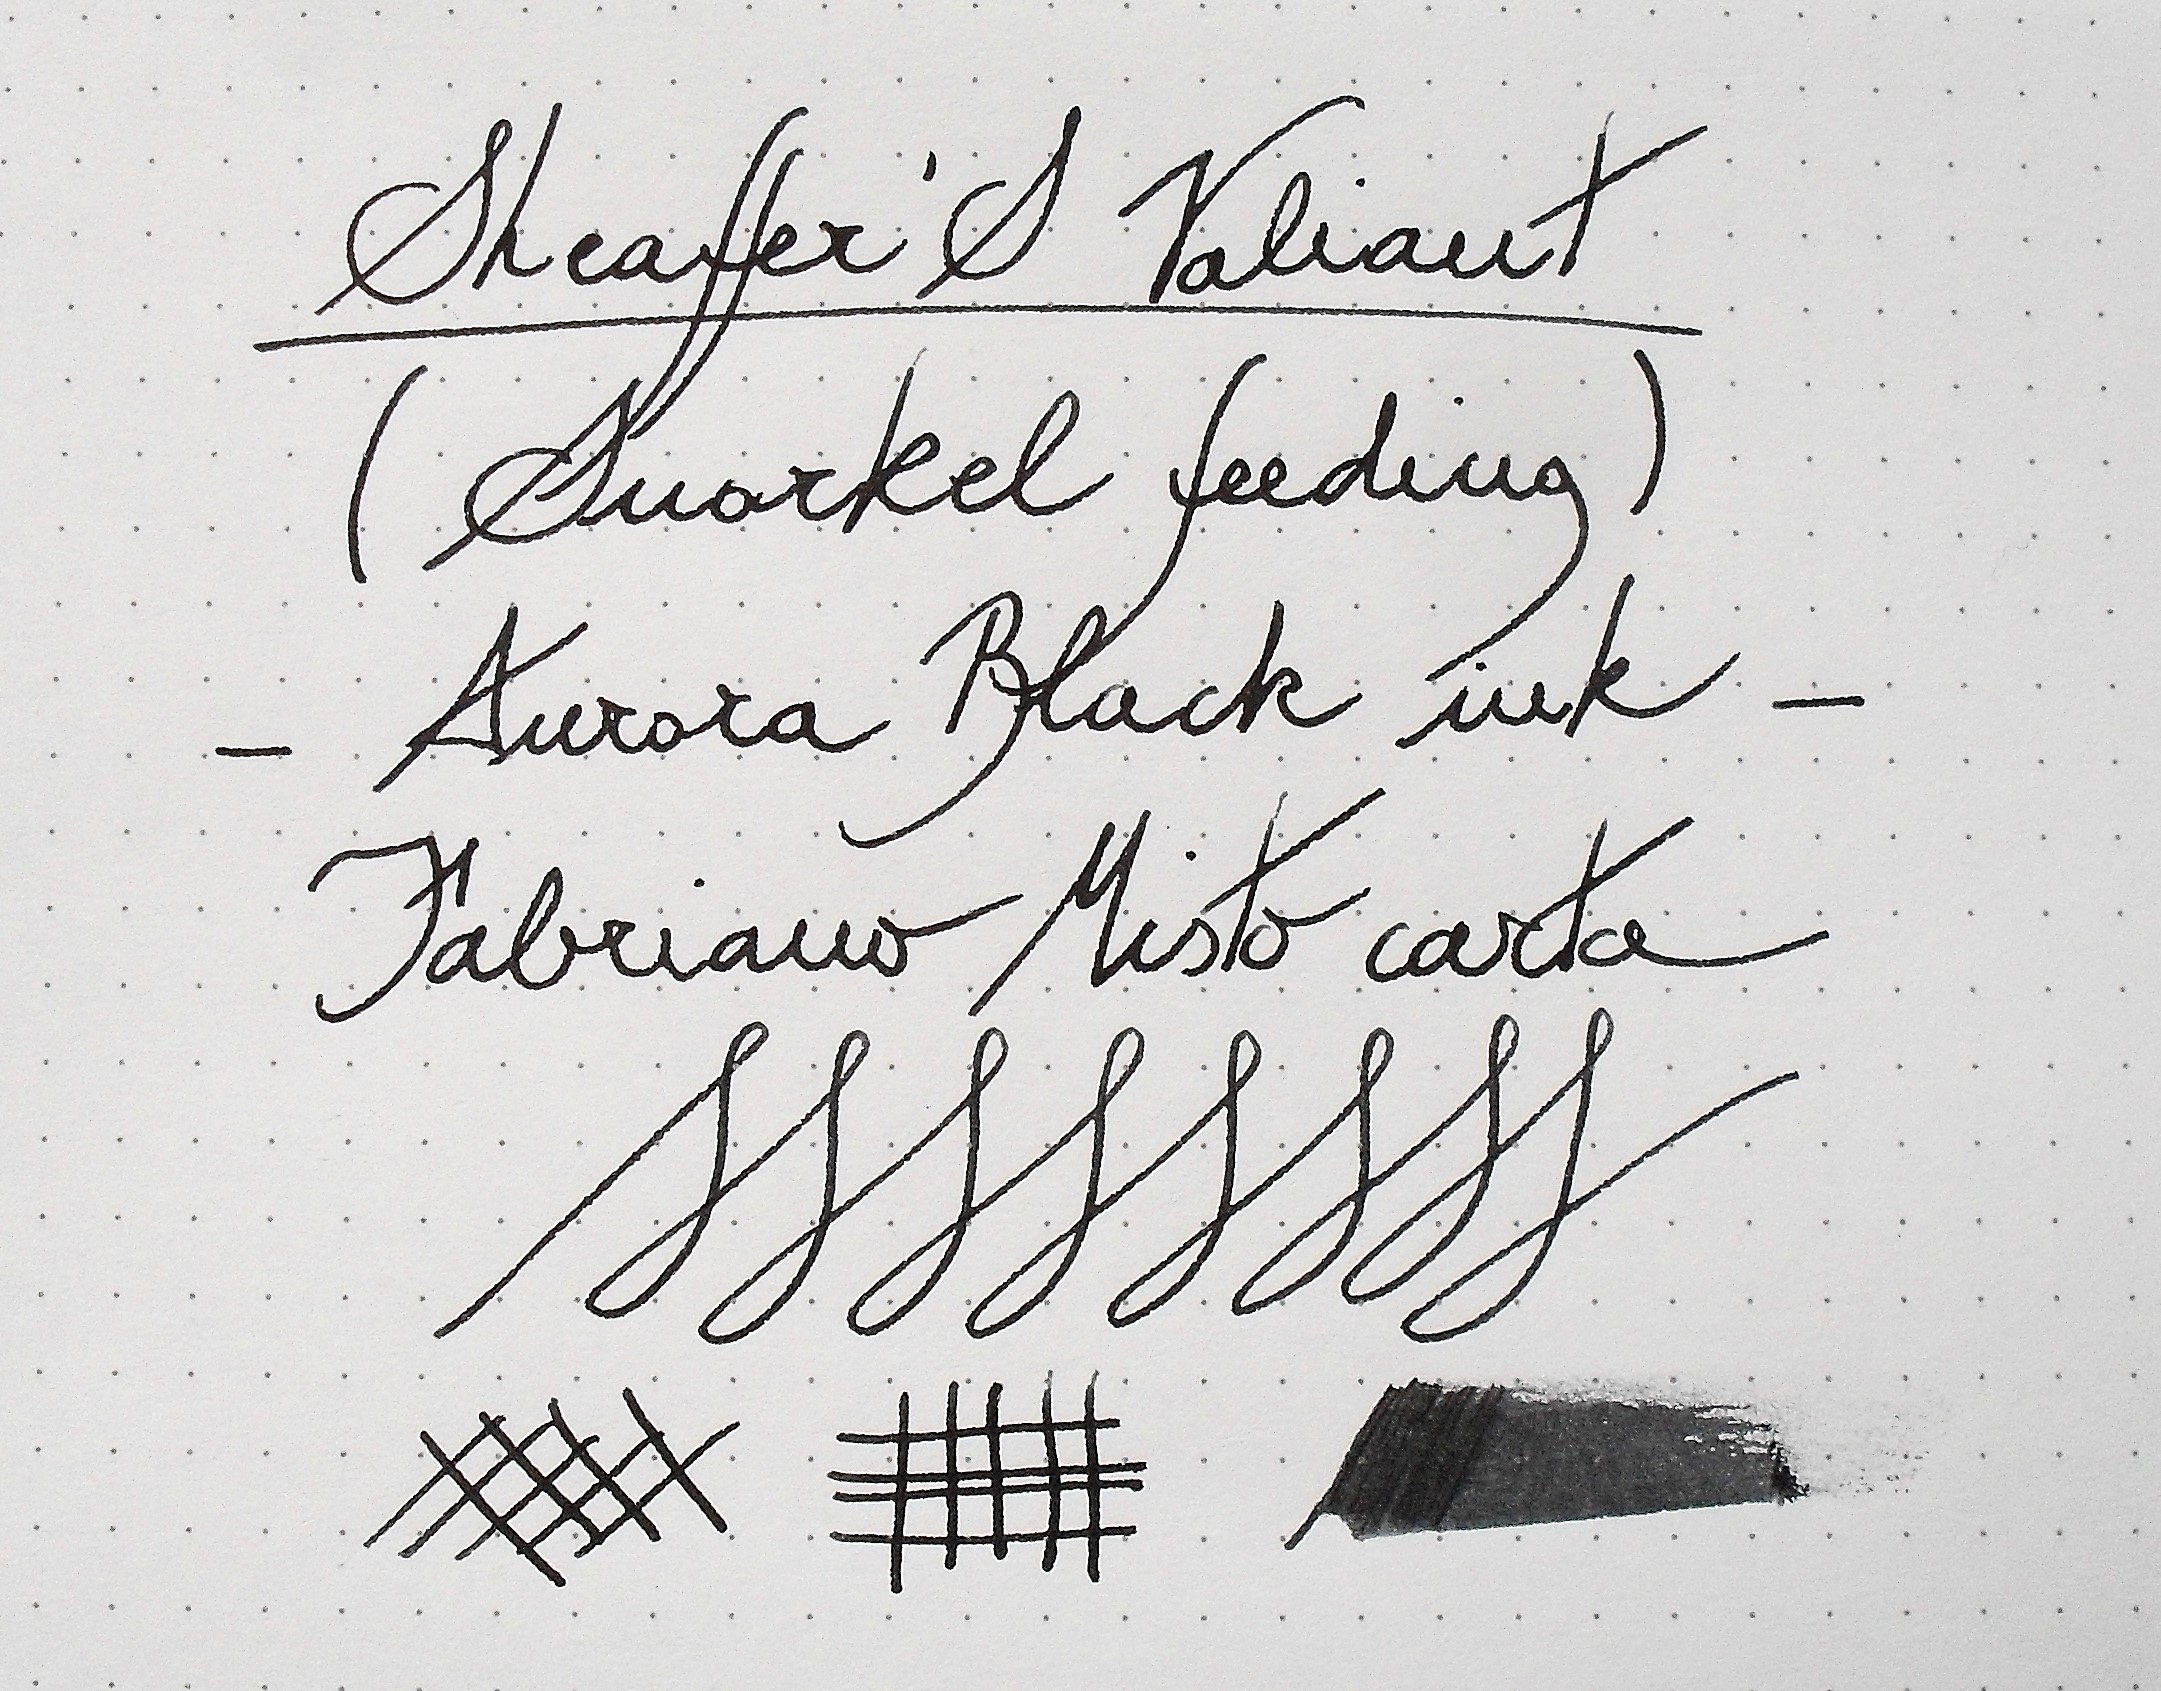 Sheaffer'S Valiant
(Snorkel feeding)
- Aurora Black ink -
Fabriano Misto carta